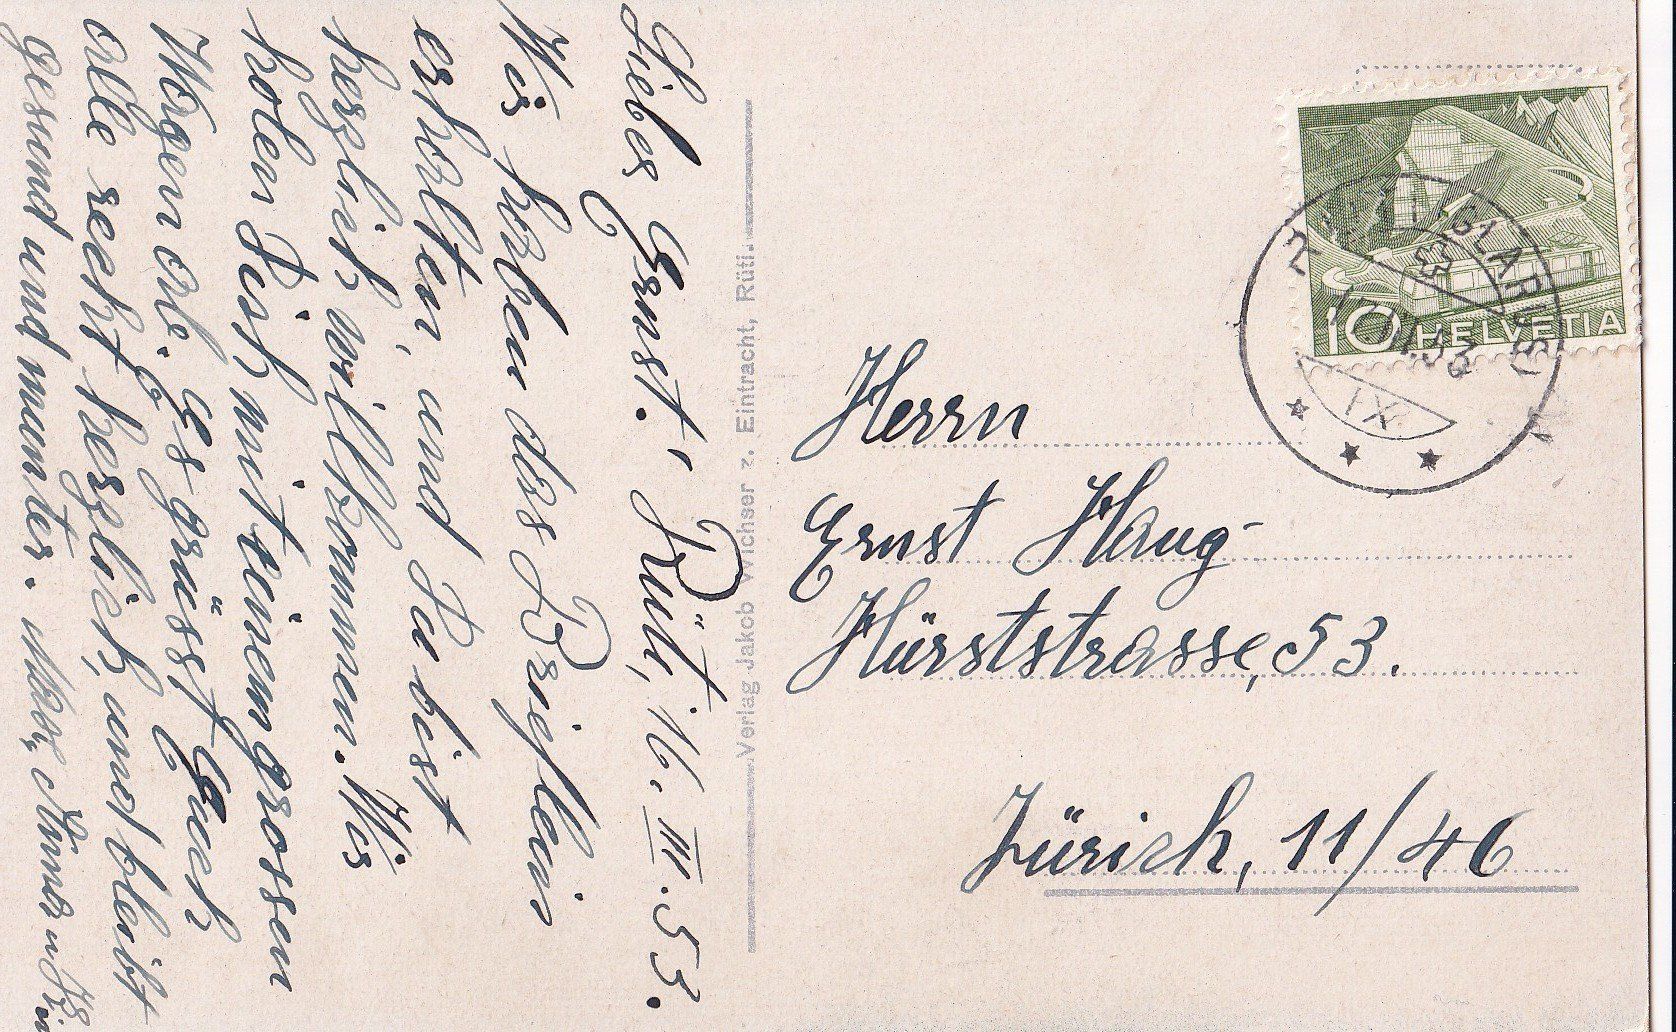 Lieber Ernst! Rüti, 16. III. 53.
Wir haben das Brieflein
erhalten, und Du bist
herzlich willkommen. Wir
holen Dich mit einem grossen
Wagen ab. Es grüsst Euch
alle recht herzlich, und bleibt
gesund und munter. Anna u.
Verlag Jakob Wichser z. Eintracht, Rüti.
10 HELVETIA
GLARUS
IX
Herrn
Ernst Haug
Hürststrasse, 53.
Zürich, 11/46